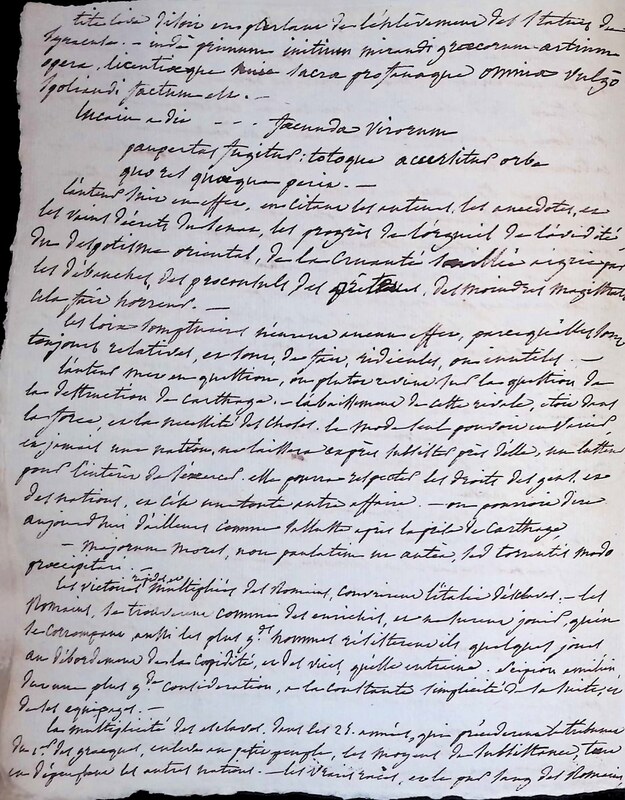 tite live disoit en parlant de l'enlèvement des statues de
Syracuse. - inde primum initium mirandi graecorum artium
opera, licentiaeque sacra profanaque omnia vulgo
spoliandi factum est. -
lucain a dit - - - fecunda virorum
paupertas fugitur: totoque accersitur orbe
quo res quaeque perit. -
l'auteur suit en effet, en citant les auteurs, les anecdotes, et
les vains décrets du Sénat, les progrès de l'orgueil de l'avidité,
du despotisme oriental, de la cruauté aigrie par
les débauches, des proconsuls des préteurs, des moindres magistrats
cela fait horreur. -
les loix somptuaires n'eurent aucun effet, parcequ'elles sont
toujours relatives, et sont, de fait, ridicules, ou inutiles. -
l'auteur met en question, ou plutot revient sur la question de
la destruction de carthage. - l'abaissement de cette rivale, etoit dans
la force, et la necessité des choses. le mode seul pouvoit en varier
et jamais une nation, ne laissera exprès subsister près d'elle, une lutte
pour l'intérêt de s'exercer. elle pourra respecter les droits des gens, et
des nations, et c'est une toute autre affaire. - on pourroit dire
aujourd'hui d'ailleurs comme salluste après la fin de Carthage,
- majorum mores, non paulatim ut antea, sed torrentis modo
praecipitati. -
les victoires rapides et multipliées des Romains, couvrirent l'italie d'esclaves. - les
Romains, se trouverent comme des enrichis, et un jour, qui en
se corrompant aussi les plus gds hommes résisterent ils, quelques jours
au débordement de la cupidité, et des vices, qu'elle entraine. Scipion emilien
dut une plus gde consideration, a la constante simplicité de sa suite, et
de ses equipages. -
la multiplicité des esclaves, dans les 25. années, qui précéderent le tribunat
du 1er des gracques, enleva au petit peuple, les moyens de subsistance, tout
en dépeuplant les autres nations. - les vrais et le pur sang des Romains